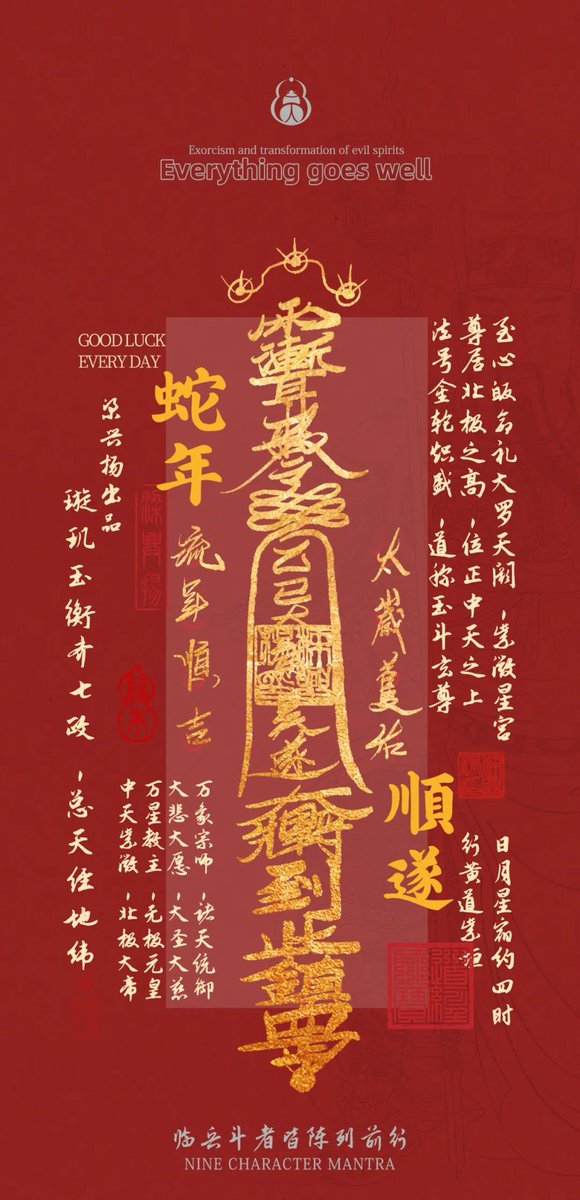 Exorcism and transformation of evil spirits
Everything goes well
GOOD LUCK
EVERY DAY
至心皈命礼大罗天阙，紫微星宫
尊居北极之高，位正中天之上
法号金轮炽盛，道称玉斗玄尊
日月星宿约四时
行黄道紫垣
太歲蔓佑
順遂
乙巳太
到此鎮
蛇年
流年順吉
梁兴扬出品
璇玑玉衡齐七政，总天经地纬
万象宗师，诸天统御
大悲大愿，大圣大慈
万星教主，无极元皇
中天紫微，北极大帝
临兵斗者皆陈列前行
NINE CHARACTER MANTRA